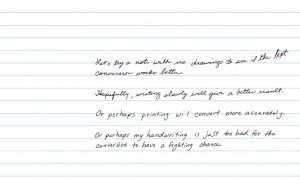 Let's try a note with no drawings to see if the text
conversion works better.
Hopefully, writing slowly will give a better result.
Or perhaps printing will convert more accurately.
Or perhaps my handwriting is just too bad for the
conversion to have a fighting chance.